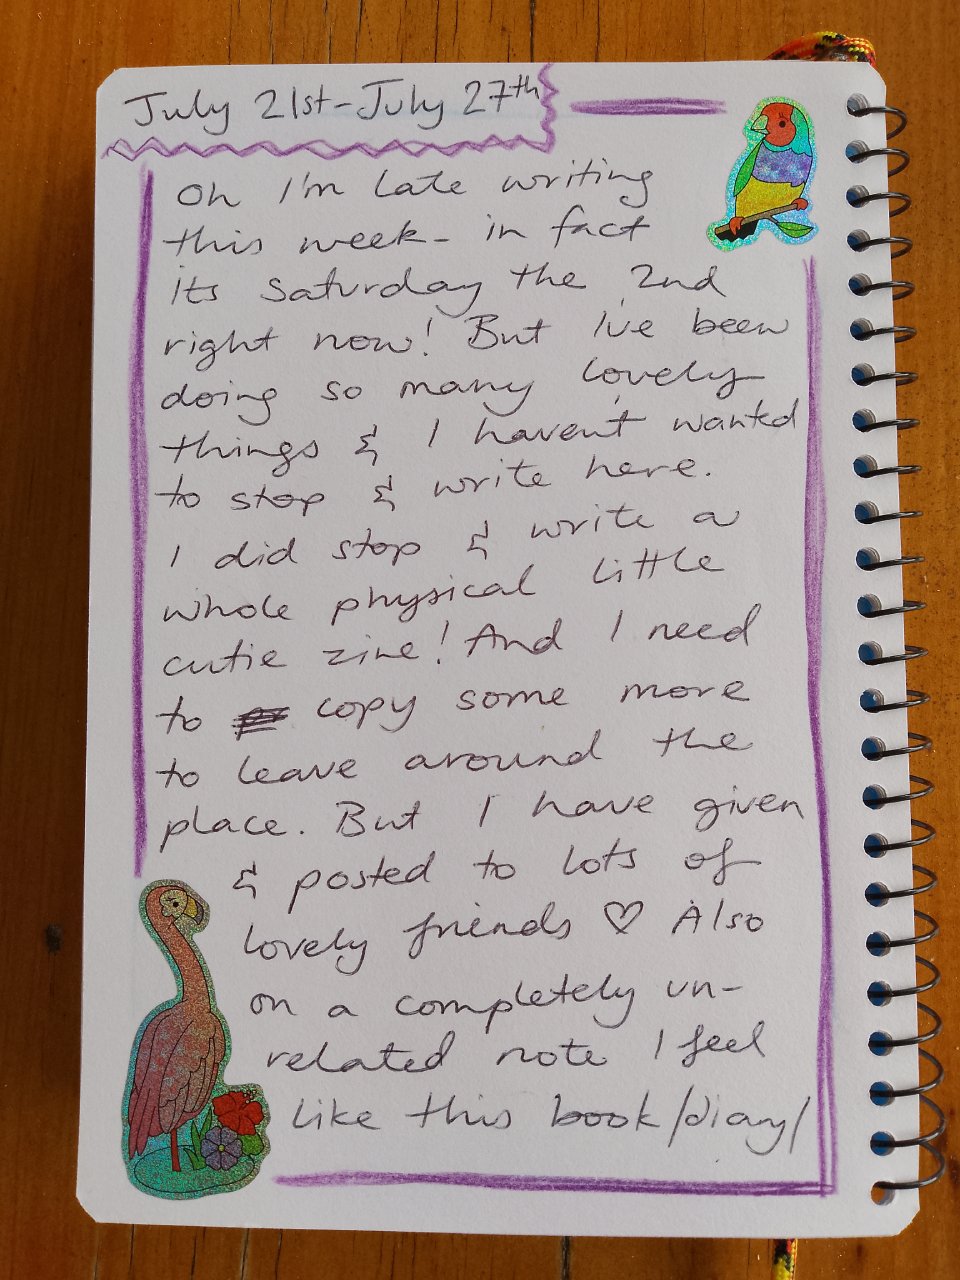 July 21st-July 27th
Oh I'm late writing
this week- in fact
its Saturday the 2nd
right now! But I've been
doing so many lovely
things & I haven't wanted
to stop & write here.
I did stop & write a
whole physical little
cutie zine! And I need
to copy some more
to leave around the
place. But I have given
& posted to lots of
lovely friends ♡ Also
on a completely un-
related note I feel
like this book/diary/